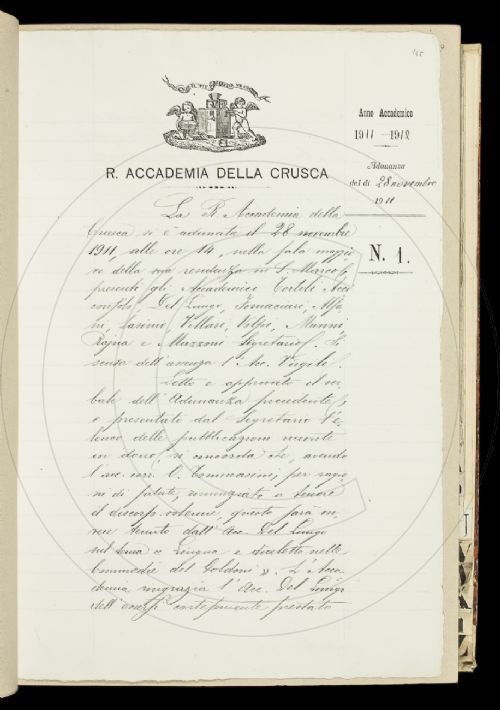 R. ACCADEMIA DELLA CRUSCA
Anno Accademico
1911-1912
Adunanza
del dì 28 novembre
1911
N. 1.
La R. Accademia della
Crusca si è adunata il 28 novembre
1911, alle ore 14, nella sala maggio
re della sua residenza in S. Marco,
presenti gli Accademici Tortoli Arci
consolo, Del Lungo, Tommasini,
Vitelli, Volpi, Manni,
Rajna e Mazzoni Segretario. Si
scusa dell'assenza l'Acc. Vergili.
Letto e approvato il ver
bale dell'Adunanza precedente,
e presentato dal Segretario l'e
lenco delle pubblicazioni venute
in dono, si annunzia che, avendo
l'acc. corr. O. Tommasini, per ragio
ni di salute, rinunziato a tenere
il discorso solenne, questo sarà in
vece tenuto dall'Acc. Del Lungo
sul tema « Lingua e dialetto nelle
Commedie del Goldoni ». L'Acca
demia ringrazia l'Acc. Del Lungo
dell' cortesemente prestato